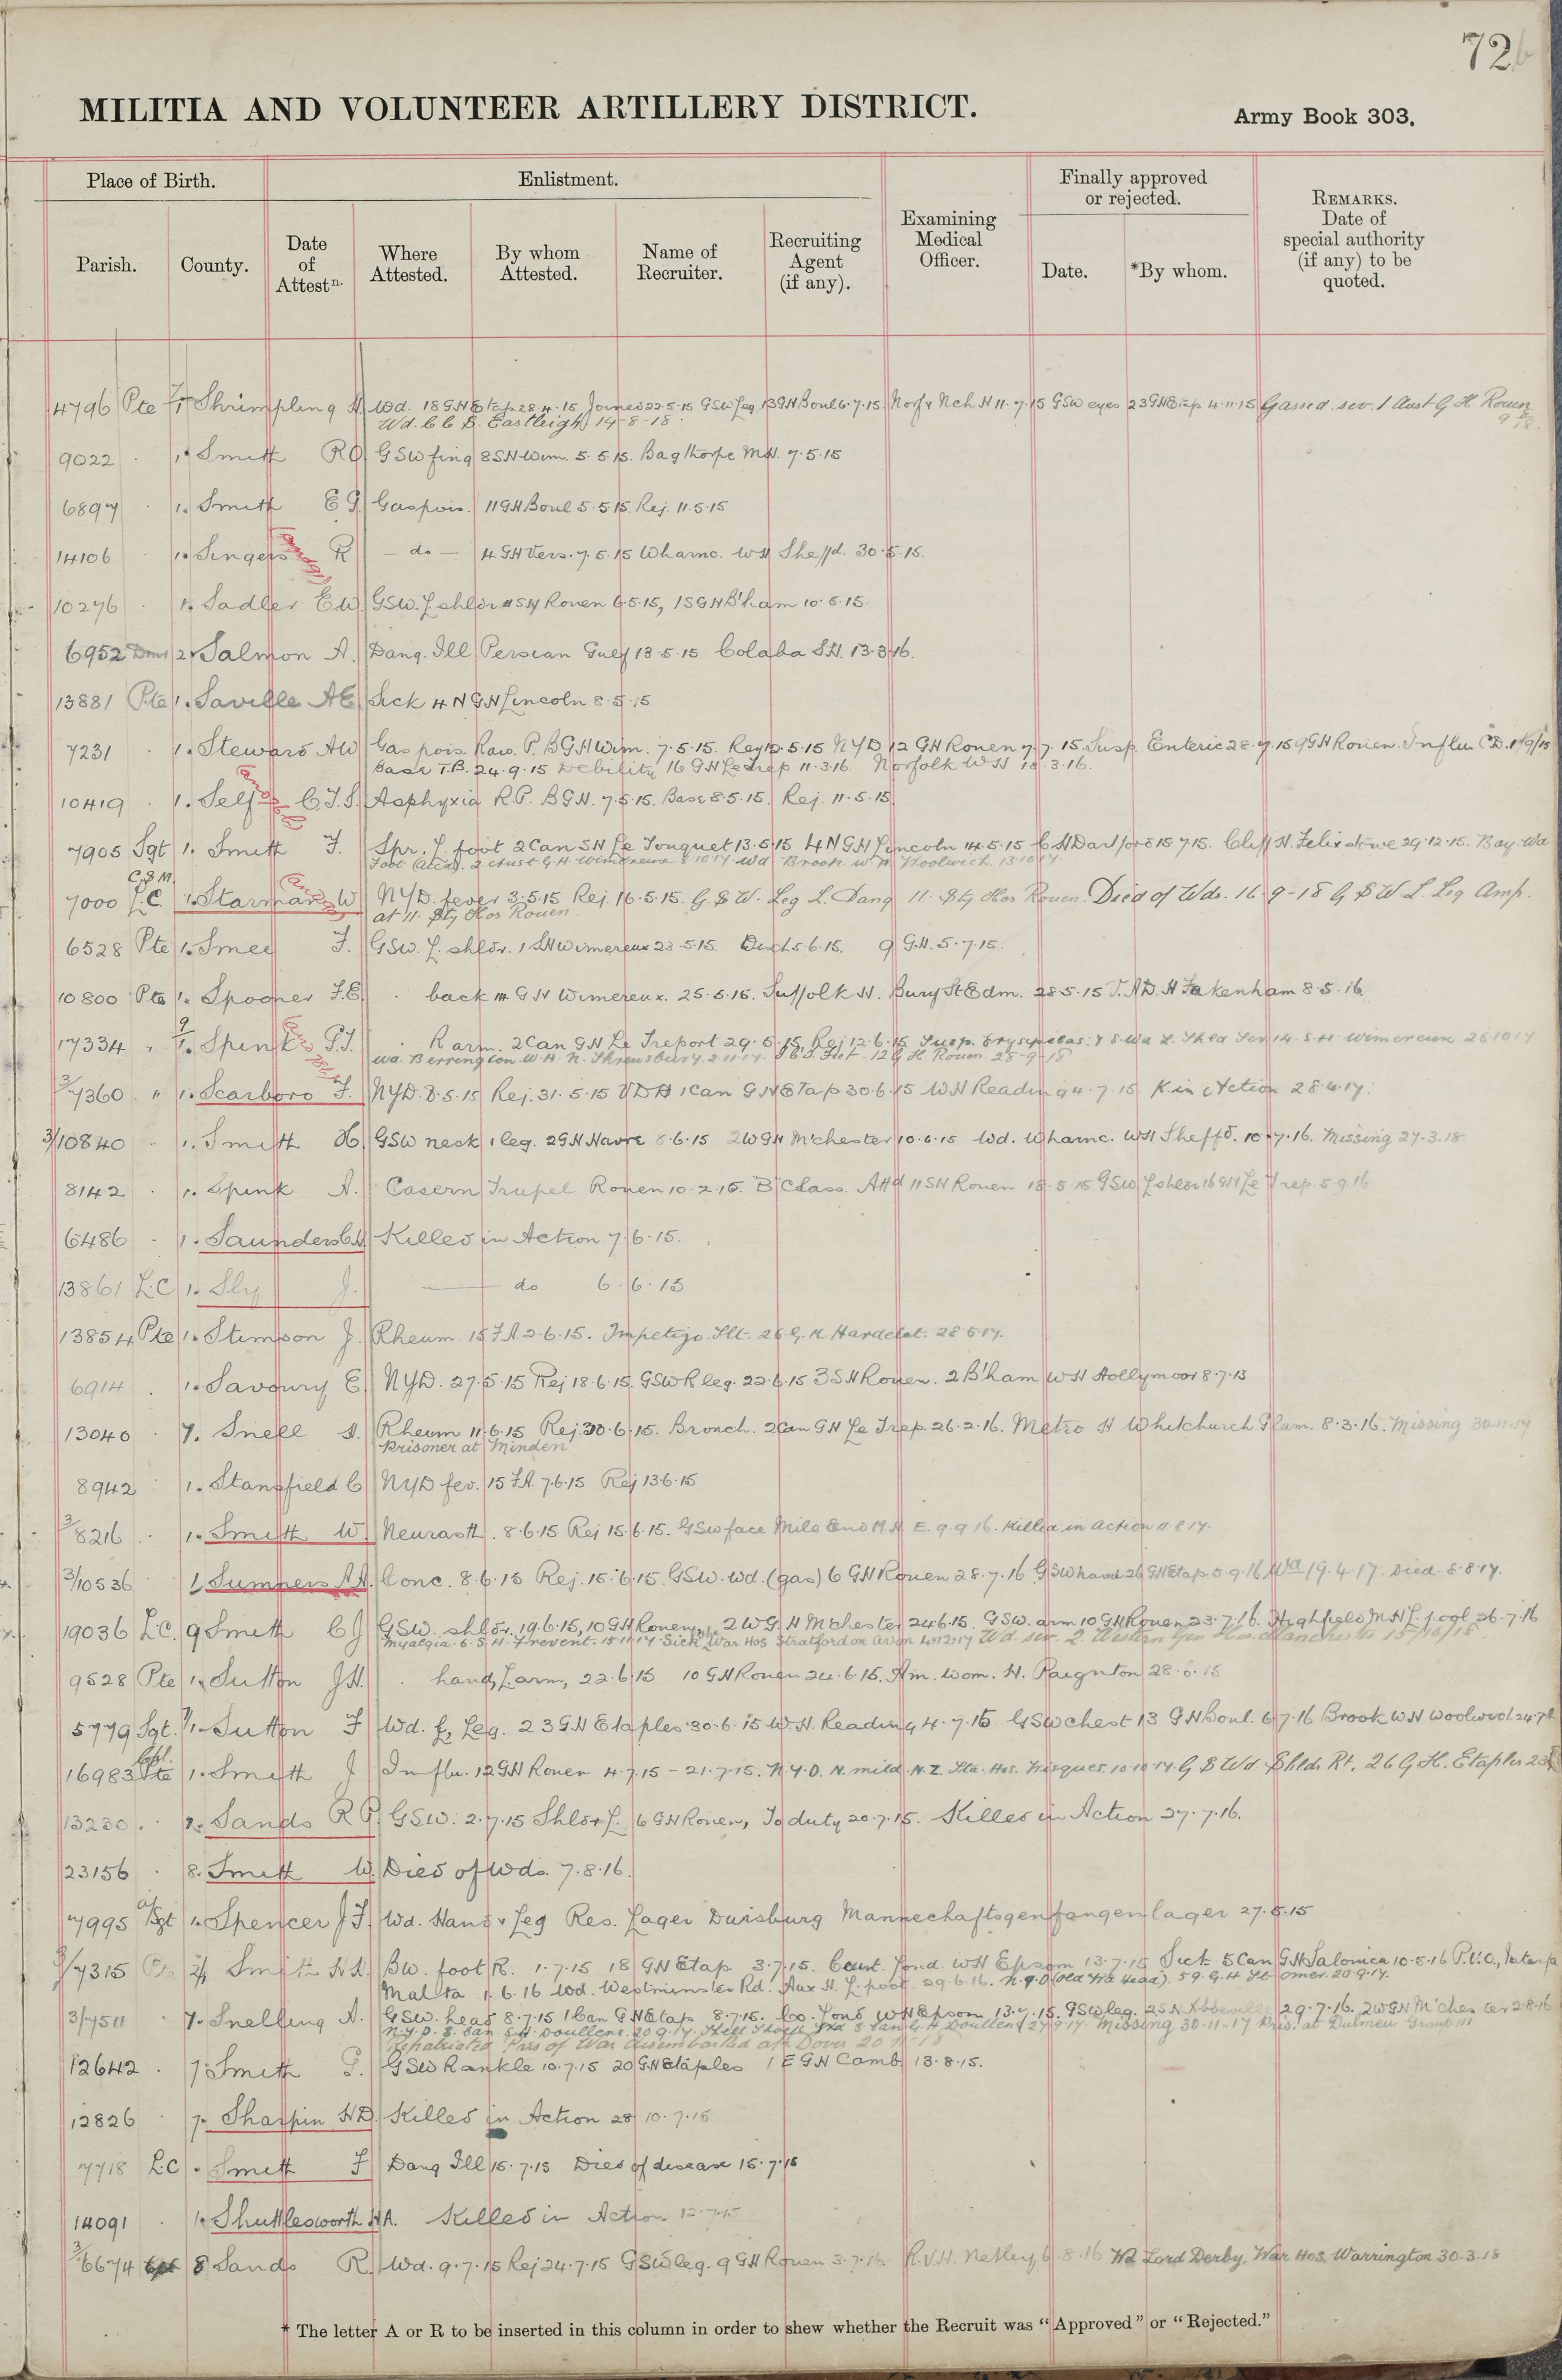 72b
MILITIA AND VOLUNTEER ARTILLERY DISTRICT.
Army Book 303.
Place of Birth.
Enlistment.
Finally approved or rejected.
Parish.
County.
Date of Attestn.
Where Attested.
By whom Attested.
Name of Recruiter.
Recruiting Agent (if any).
Examining Medical Officer.
Date.
*By whom.
REMARKS. Date of special authority (if any) to be quoted.
4796 Pte Shrimpling H Wd. 18 GH Etap 28.4.15 Joined 22.5.15 GSW Leg 13 GH Boul 6.7.15. Norf & Nch H 11.7.15 GSW eyes 23 GH Etap 4.11.15 Gassed. sev. 1 Aust G H. Rouen
Wd. C C D. Eastleigh 14-8-18
9022 . 1. Smith RO GSW fing 8 SH Wim. 5.5.15. Bagthorpe MH. 7.5.15
6897 . 1. Smith E G Gas pois. 11 GH Boul 5.5.15. Rej. 11.5.15
14106 1. Singers R — do — 4 GH Vers. 7.5.15 Wharnc. WH Sheffd. 30.5.15.
10276 . 1. Sadler EW GSW. L shldr SH Rouen 6.5.15, 1 SGH B'ham 10.5.15
6952 Dmr 2 Salmon A. Dang. Ill Persian Gulf 13.5.15 Colaba SH. 13.3.16.
13881 Pte 1. Saville AE Sick 4 N GH Lincoln 8.5.15
7231 . 1. Steward AW Gas pois Raw. P. BGH Wim. 7.5.15. Rej 12.5.15 NYD 12 GH Rouen 7.7.15. Susp. Enteric 28.7.15 9 GH Rouen. Influ CD. 1/9/15
Base T.B. 24.9.15 Debility 16 GH Le Trep 11.3.16. Norfolk WH 18.3.16.
10419 . 1. Self C.J.S. Asphyxia R.P. BGH. 7.5.15. Base 8.5.15. Rej. 11.5.15
7905 Sgt 1. Smith F. Spr. L. foot 2 Can SH Le Touquet 13.5.15 4 N GH Lincoln 14.5.15 C H Dartford 15.7.15. Cliff H. Felixstowe 29.12.15. Bay. Wd
Foot (Accid). 2 Aust G H Wimereux 8.10.17 Wd Brook W H Woolwich 13.10.17.
C.S.M.
7000 L.C. 1. Starman W NYD. fever 3.5.15 Rej. 16.5.15. G.S.W. Leg L. Dang 11. Sty Hos Rouen. Died of Wds. 16-9-18 G S W L. Leg Amp.
at 11. Sty Hos Rouen
6528 Pte 1. Smee F. GSW. L. shldr. 1 SH Wimereux 23.5.15. Disch 5.6.15. 9 G.H. 5.7.15.
10800 Pte 1. Spooner F.E. . back GH Wimereux. 25.5.15. Suffolk H. Bury St Edm. 28.5.15 V.A.D. H Fakenham 8.5.16.
17334 . Spinks P.J. . R arm. 2 Can GH Le Treport 29.5.15. Rej 12.6.15 Susp. Erysipelas: SH Wimereux 26.10.17
Wd. Berrington W H. N. Shrewsbury. 2.11.17. 12 G H. Rouen 25-9-18
3/7360 " 1. Scarboro F. NYD. 8.5.15 Rej. 31.5.15 VDH 1 Can GH ETap 30.6.15 WH Reading 4.7.15 K in Action 28.4.17.
3/10840 . 1. Smith H. GSW neck & leg. 2 GH Havre 8.6.15 2 WGH M'chester 10.6.15 Wd. Wharnc. WH Sheffd. 10.7.16. Missing 27-3-18
8142 . 1. Spink A. Casern Trupel Rouen 10.2.15. B Class. Attd 11 SH Rouen 18.5.15 GSW L shldr 16 GH Le Trep. 5.9.16
6486 . 1. Saunders C.H. Killed in Action 7.6.15.
13861 L.C. 1. Sly J. — do 6.6.15
13854 Pte 1. Stimson J. Rheum 15 FA 2.6.15. Impetigo. Slt. 26 G. H. Hardelot. 28.5.17.
6914 . 1. Savoury E. NYD. 27.5.15 Rej 18.6.15. GSW R leg. 22.6.15 3 SH Rouen. 2 B'ham WH Hollymoor 8.7.15
13040 . 7. Snell S. Rheum 11.6.15 Rej. 30.6.15. Bronch. 2 Can GH Le Trep. 26.2.16. Metro H Whitchurch Glam. 8.3.16. Missing 30.11.17
Prisoner at Minden
8942 . 1. Stansfield C NYD fev. 15 FA. 7.6.15 Rej 13.6.15
3/8216 . 1. Smith W. Neurasth. 8.6.15 Rej 15.6.15. GSW face Mile End M.H. E. 9.9.16. Killed in action 11.8.17.
3/10536 1 Sumners A.A. Conc. 8.6.15 Rej. 15.6.15. GSW. Wd. (gas) 6 GH Rouen 28.7.16 GSW hand 26 GH Etap. 5.9.16 Wd 19.4.17. Died. 8.8.17.
19036 L.C. 9 Smith C J GSW. shldr. 19.6.15, 10 GH Rouen, 2 WG. H M'chester 24.6.15. GSW. arm 10 GH Rouen 23.7.16. Highfield MH L'pool 26.7.16
Myalgia. 6. S. H. Frevent. 15.11.17 Sick War Hos Stratford on Avon 4.12.17 Wd. sev. 2. Western Gen Hos. Manchester 15/10/18.
9528 Pte 1. Sutton J.H. . hand, L arm, 22.6.15 10 GH Rouen 24.6.15. Am. Wom. H. Paignton 28.6.15
5779 Sgt. 1. Sutton F Wd. L. Leg. 23 GH Etaples 30.6.15 W.H. Reading 4.7.15 GSW chest 13 GH Boul. 6.7.16 Brook WH Woolwich 24.7
Cpl.
16983 Pte 1. Smith J Influ. 12 GH Rouen 4.7.15 - 21.7.15. N.Y.D. N. mild. N.Z. Sta. Hos. Wisques. 10.10.17. G S Wd Shldr Rt. 26 G H. Etaples 23
13230. . 7. Sands R P. GSW. 2.7.15 Shldr L. 6 GH Rouen, To duty 20.7.15. Killed in Action 27.7.16.
23156 . 8. Smith W. Died of Wds. 7.8.16.
7995 a/Sgt 1. Spencer J F. Wd. Hand & Leg Res. Lager Duisburg Mannechaftsgenfangenlager 27.5.15
3/7315 Pte Smith H.A. BW. foot R. 1.7.15 18 GH Etap 3.7.15. Count. Lond. WH Epsom 13.7.15 Sick 5 Can GH Salonica 10.5.16 P.U.O.,
Malta 1.6.16 Wd. Westminster Rd. Aux H. L'pool 29.6.16. N.Y.D (Old Wd Head). 59. G. H St Omer. 20.9.17.
3/7511 . 7. Snelling A. GSW. head 8.7.15 1 Can GH Etap 8.7.15. Co. Lond WH Epsom 13.7.15. GSW leg. 2 SH Abbeville 29.7.16. 2 WGH M'chester 2.8.16
N.Y.D. 3. Can. SH Doullens. 20.9.17. Shell Shock 3 Can S H Doullens 27.9.17. Missing 30-11-17 Pris. at Dulmen Group III
Repatriated Pris of War disembarked at Dover 20
12642 . 7 Smith G. GSW R ankle 10.7.15 20 GH Etaples 1 E GH Camb. 13.8.15.
12826 . 7. Sharpin H.D. Killed in Action 10.7.15
7718 L.C . Smith F Dang Ill 15.7.15 Died of disease 15.7.15
14091 . 1. Shuttlesworth H.A. Killed in Action 12.7.15
3/6674 8 Sands R. Wd. 9.7.15 Rej 24.7.15 GSW leg. 9 GH Rouen 3.7.16 R.V.H. Netley 6.8.16 Wd Lord Derby. War Hos. Warrington 30.3.18
* The letter A or R to be inserted in this column in order to shew whether the Recruit was “Approved” or “Rejected.”